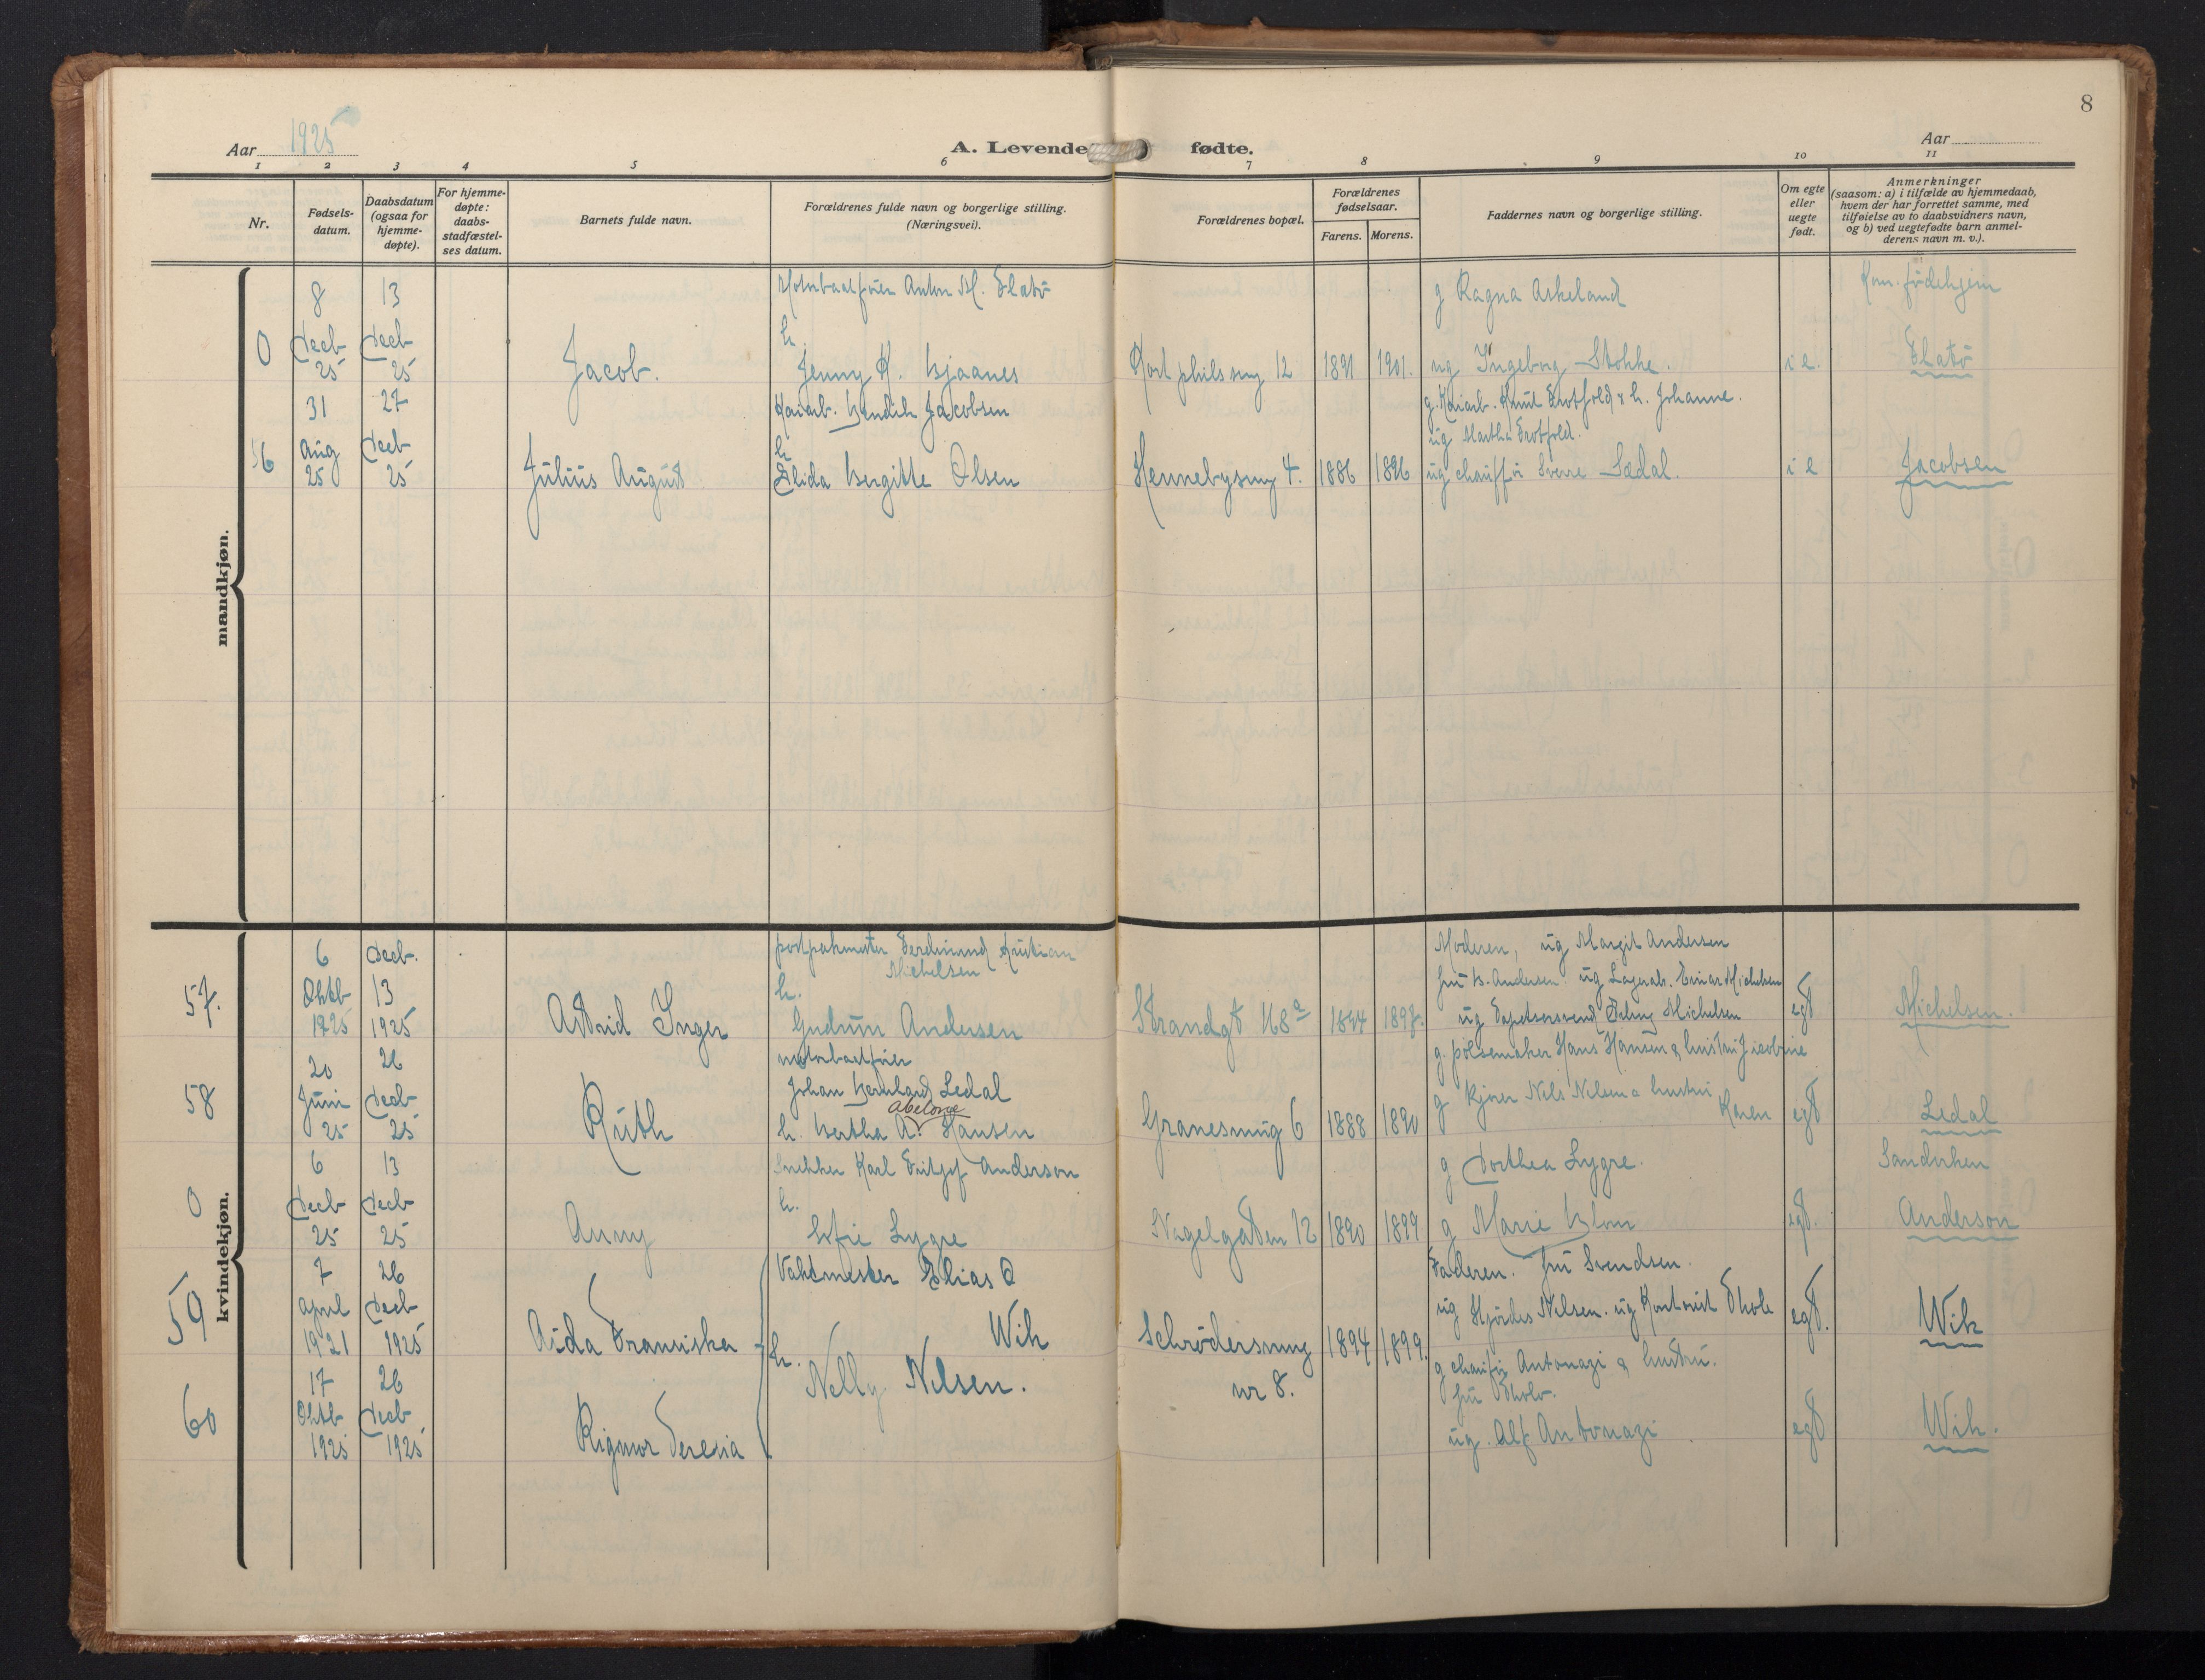 8
Aar 1925
A. Levende fødte.
Aar
1 2 3 4 5 6 7 8 9 10 11
Nr.
Fødsels-
datum.
Daabsdatum
(ogsaa for
hjemme-
døpte).
For hjemme-
døpte:
daabs-
stadfæstel-
ses datum.
Barnets fulde navn.
Forældrenes fulde navn og borgerlige stilling.
(Næringsvei).
Forældrenes bopæl.
Forældrenes
fødselsaar.
Farens. Morens.
Faddernes navn og borgerlige stilling.
Om egte
eller
uegte
født.
Anmerkninger
(saasom: a) i tilfælde av hjemmedaab,
hvem der har forrettet samme, med
tilføielse av to daabsvidners navn,
og b) ved uegtefødte barn anmel-
derens navn m. v.).
mandkjøn.
8 13 Motorbaatfører Anton M. Flatø g Ragna Askeland Kom. fødehjem
0 Decb Decb h.
25 25 Jacob. Jenny K. Bjaanes 12 1891 1901. ug Ingeborg Stokke. i e. Flatø
31 27 Kaiarb. Bendik Jacobsen g. Kaiarb. Knut & h. Johanne.
ug Martha
56 Aug Decb h
25 25 Julius August Elida Bergitte Olsen Hennebysmug 4. 1886 1896 ug chauffør Sverre Sædal. i e Jacobsen
kvindekjøn.
6 Decb. postpakmester Ferdinand Kristian Moderen, ug Margit Andersen
Michelsen
57. Oktb 13 h. fru B. Andersen ug Lagerarb. Einar Michelsen
1925 1925 Astrid Inger Gudrun Andersen Strandgt 168a 1894 1897. ug Tapetsersvend Michelsen egt Michelsen.
20 26 motorbaatfører g. pølsemaker Hans Hansen & hustru Jacobine
58 Juni Decb Johan Bernhard Ledal g Kjører Nils Nilsen & hustru Karen
Abelone
25 25 Ruth h. Bertha A. Hansen Granesmug 6 1888 1890 egt Ledal
6 13 Snekker Karl Fritjof Anderson g Dorthea Lygre. Sandviken
0 Decb Decb h.
25 25 Anny Sofie Lygre Nagelgaten 12 1890 1899 g Marie Blom egt. Anderson
7 26 Vaktmester Elias O Faderen. fru Svendsen.
59 April Decb Wik ug Hjørdis Nilsen. ug Kontorist
1921 1925 Aida Fransiska h. Schrødersmug 1894 1899. egt. Wik
17 26 Nelly Nilsen. nr 8. g chauffør Antonazi & hustru.
60 Oktb Decb fru
1925 1925 Rigmor Teresia ug. Alf Antonazi egt Wik.